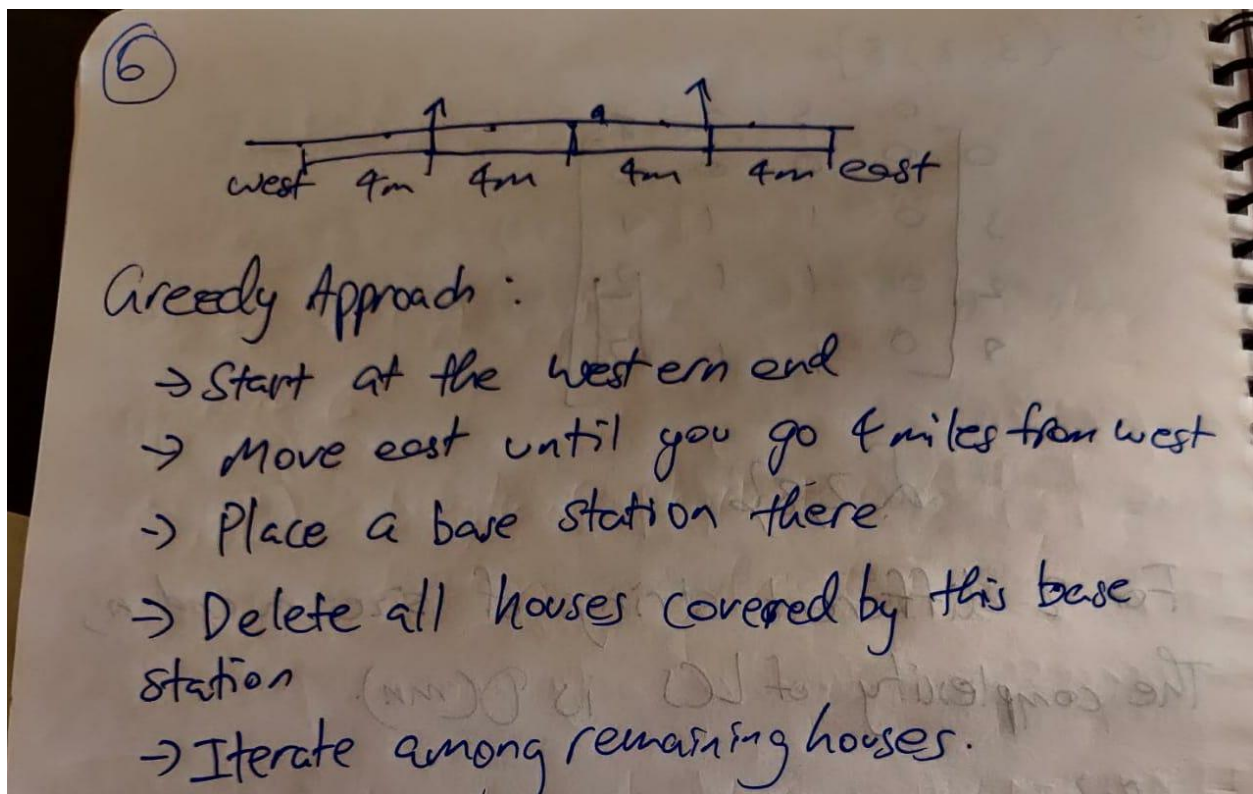 6
west 4m 4m 4m 4m east
Greedy Approach :
→ Start at the western end
→ Move east until you go 4 miles from west
→ Place a base station there
→ Delete all houses covered by this base
station
→ Iterate among remaining houses.